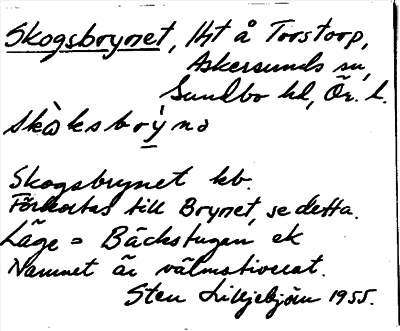 Skogsbrynet, lht å Torstorp,
Askersunds sn,
Sundbo hd, Ör. l.
skògsbrỳnə
Skogsbrynet kb.
Förkortas till Brynet, se detta.
Läge = Bäckstugan ek
Namnet är välmotiverat.
Sten Liljebjörn 1955.